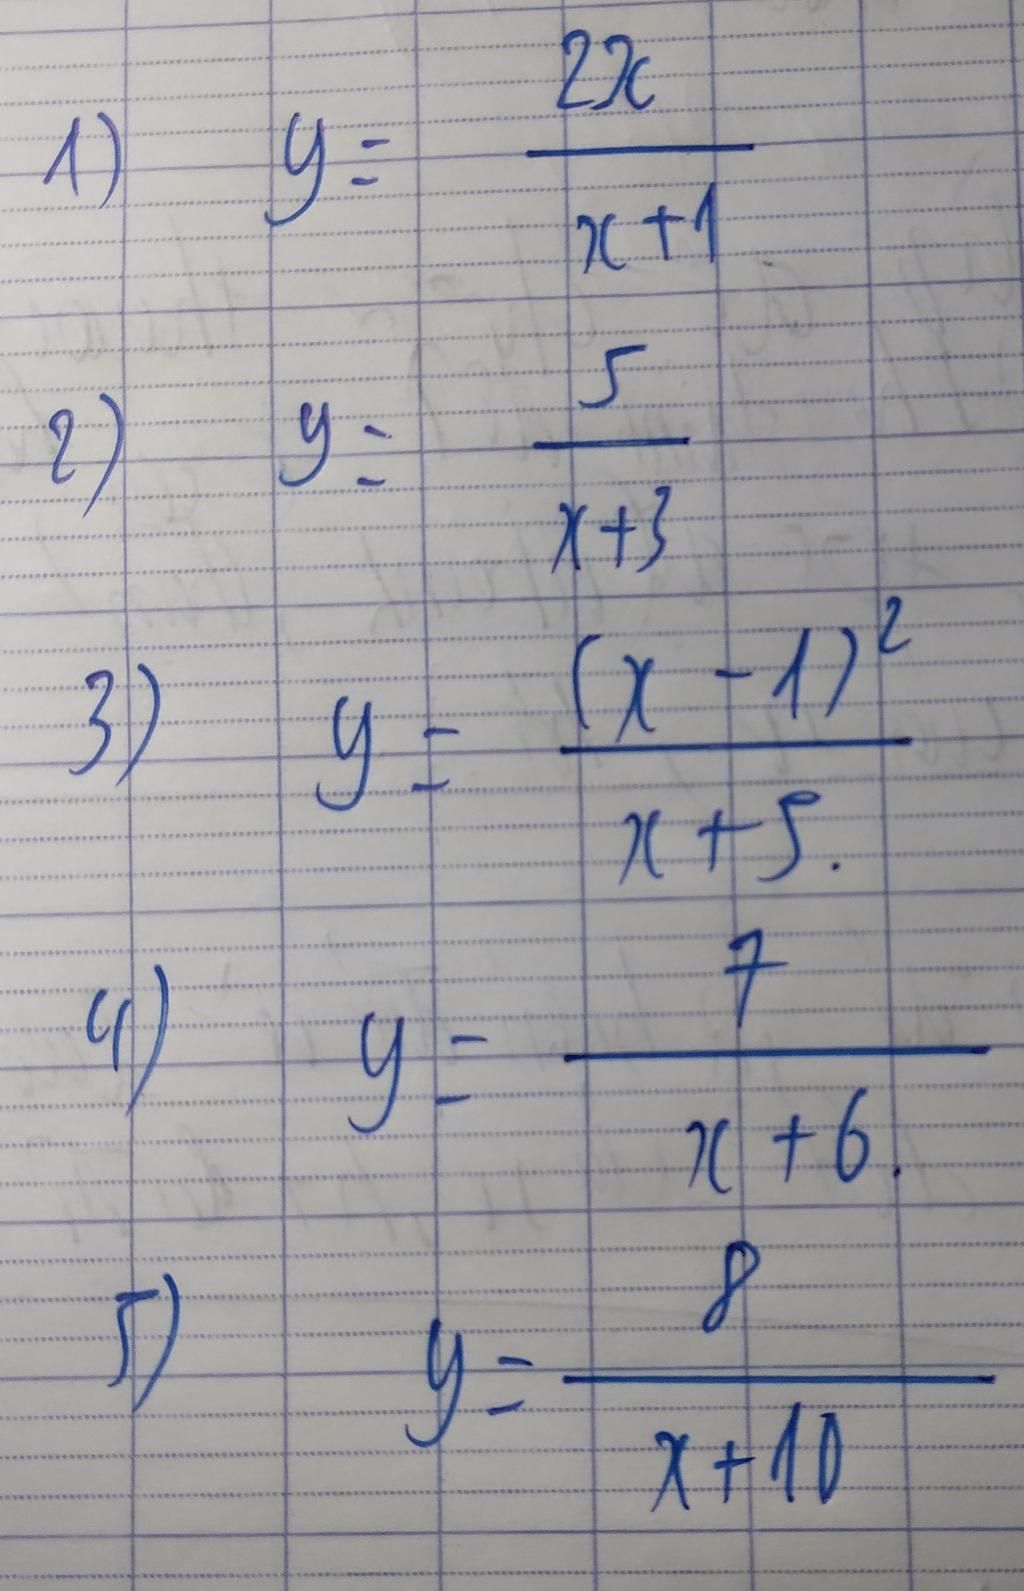 1) y = \frac{2x}{x+1}
2) y = \frac{5}{x+3}
3) y = \frac{(x-1)^2}{x+5.}
4) y = \frac{7}{x+6.}
5) y = \frac{8}{x+10}